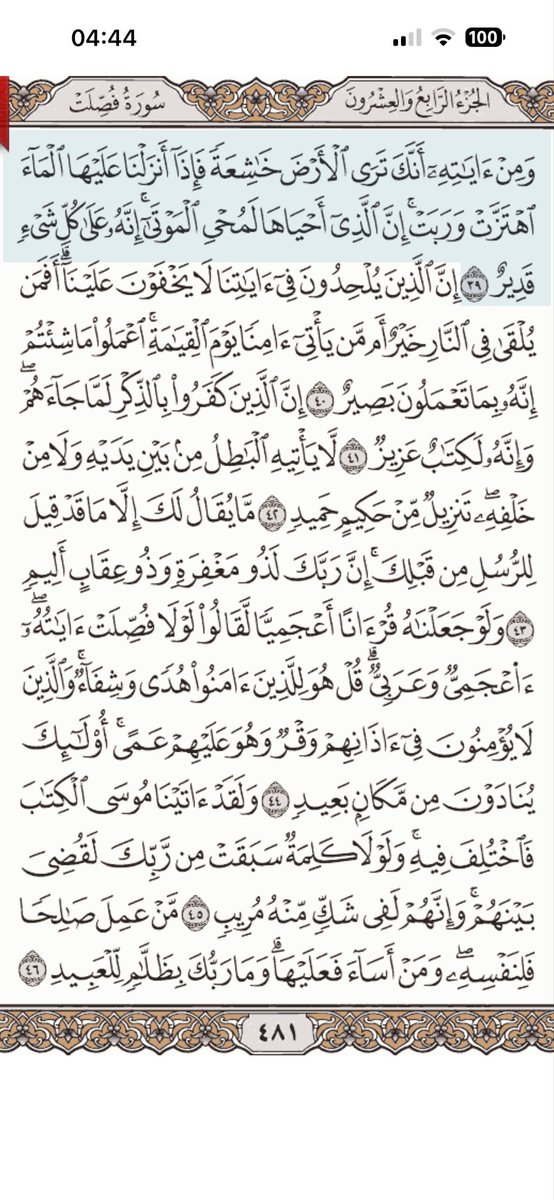 04:44
100
الجُزْءُ الرَّابِعُ وَالعِشْرُونَ
سُورَةُ فُصِّلَتْ
وَمِنْ ءَايَـٰتِهِۦٓ أَنَّكَ تَرَى ٱلْأَرْضَ خَـٰشِعَةً فَإِذَآ أَنزَلْنَا عَلَيْهَا ٱلْمَآءَ
ٱهْتَزَّتْ وَرَبَتْ ۚ إِنَّ ٱلَّذِىٓ أَحْيَاهَا لَمُحْىِ ٱلْمَوْتَىٰٓ ۚ إِنَّهُۥ عَلَىٰ كُلِّ شَىْءٍ
قَدِيرٌ ٣٩ إِنَّ ٱلَّذِينَ يُلْحِدُونَ فِىٓ ءَايَـٰتِنَا لَا يَخْفَوْنَ عَلَيْنَآ ۗ أَفَمَن
يُلْقَىٰ فِى ٱلنَّارِ خَيْرٌ أَم مَّن يَأْتِىٓ ءَامِنًا يَوْمَ ٱلْقِيَـٰمَةِ ۚ ٱعْمَلُوا۟ مَا شِئْتُمْ ۖ
إِنَّهُۥ بِمَا تَعْمَلُونَ بَصِيرٌ ٤٠ إِنَّ ٱلَّذِينَ كَفَرُوا۟ بِٱلذِّكْرِ لَمَّا جَآءَهُمْ ۖ
وَإِنَّهُۥ لَكِتَـٰبٌ عَزِيزٌ ٤١ لَّا يَأْتِيهِ ٱلْبَـٰطِلُ مِنۢ بَيْنِ يَدَيْهِ وَلَا مِنْ
خَلْفِهِۦ ۖ تَنزِيلٌ مِّنْ حَكِيمٍ حَمِيدٍ ٤٢ مَّا يُقَالُ لَكَ إِلَّا مَا قَدْ قِيلَ
لِلرُّسُلِ مِن قَبْلِكَ ۚ إِنَّ رَبَّكَ لَذُو مَغْفِرَةٍ وَذُو عِقَابٍ أَلِيمٍ
٤٣ وَلَوْ جَعَلْنَـٰهُ قُرْءَانًا أَعْجَمِيًّا لَّقَالُوا۟ لَوْلَا فُصِّلَتْ ءَايَـٰتُهُۥٓ ۖ
ءَا۬عْجَمِىٌّ وَعَرَبِىٌّ ۗ قُلْ هُوَ لِلَّذِينَ ءَامَنُوا۟ هُدًى وَشِفَآءٌ ۖ وَٱلَّذِينَ
لَا يُؤْمِنُونَ فِىٓ ءَاذَانِهِمْ وَقْرٌ وَهُوَ عَلَيْهِمْ عَمًى ۚ أُو۟لَـٰٓئِكَ
يُنَادَوْنَ مِن مَّكَانٍۭ بَعِيدٍ ٤٤ وَلَقَدْ ءَاتَيْنَا مُوسَى ٱلْكِتَـٰبَ
فَٱخْتُلِفَ فِيهِ ۗ وَلَوْلَا كَلِمَةٌ سَبَقَتْ مِن رَّبِّكَ لَقُضِىَ
بَيْنَهُمْ ۚ وَإِنَّهُمْ لَفِى شَكٍّ مِّنْهُ مُرِيبٍ ٤٥ مَّنْ عَمِلَ صَـٰلِحًا
فَلِنَفْسِهِۦ ۖ وَمَنْ أَسَآءَ فَعَلَيْهَا ۗ وَمَا رَبُّكَ بِظَلَّـٰمٍ لِّلْعَبِيدِ ٤٦
٤٨١